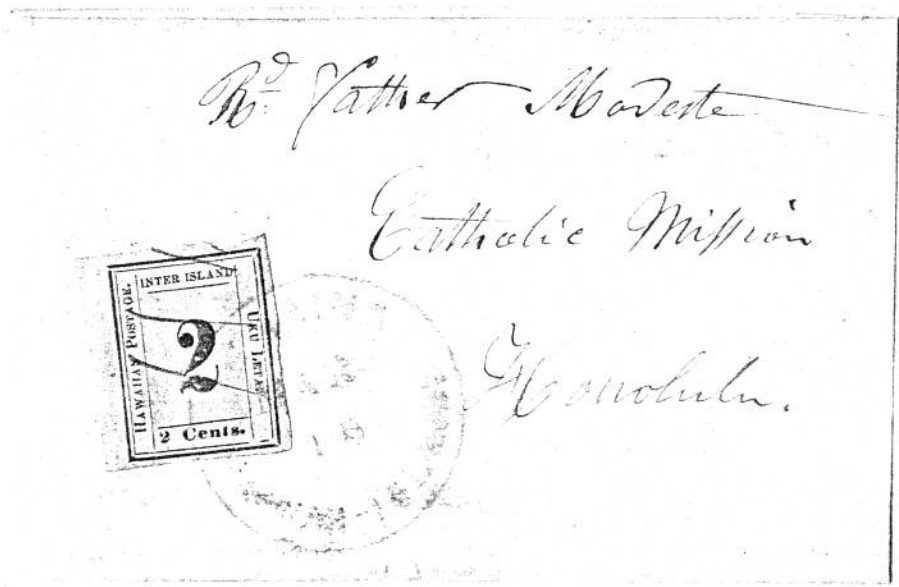 Rd. Father Modeste
Catholic Mission
Honolulu.
INTER ISLAND
HAWAIIAN POSTAGE.
UKU LETA.
2
2 Cents.